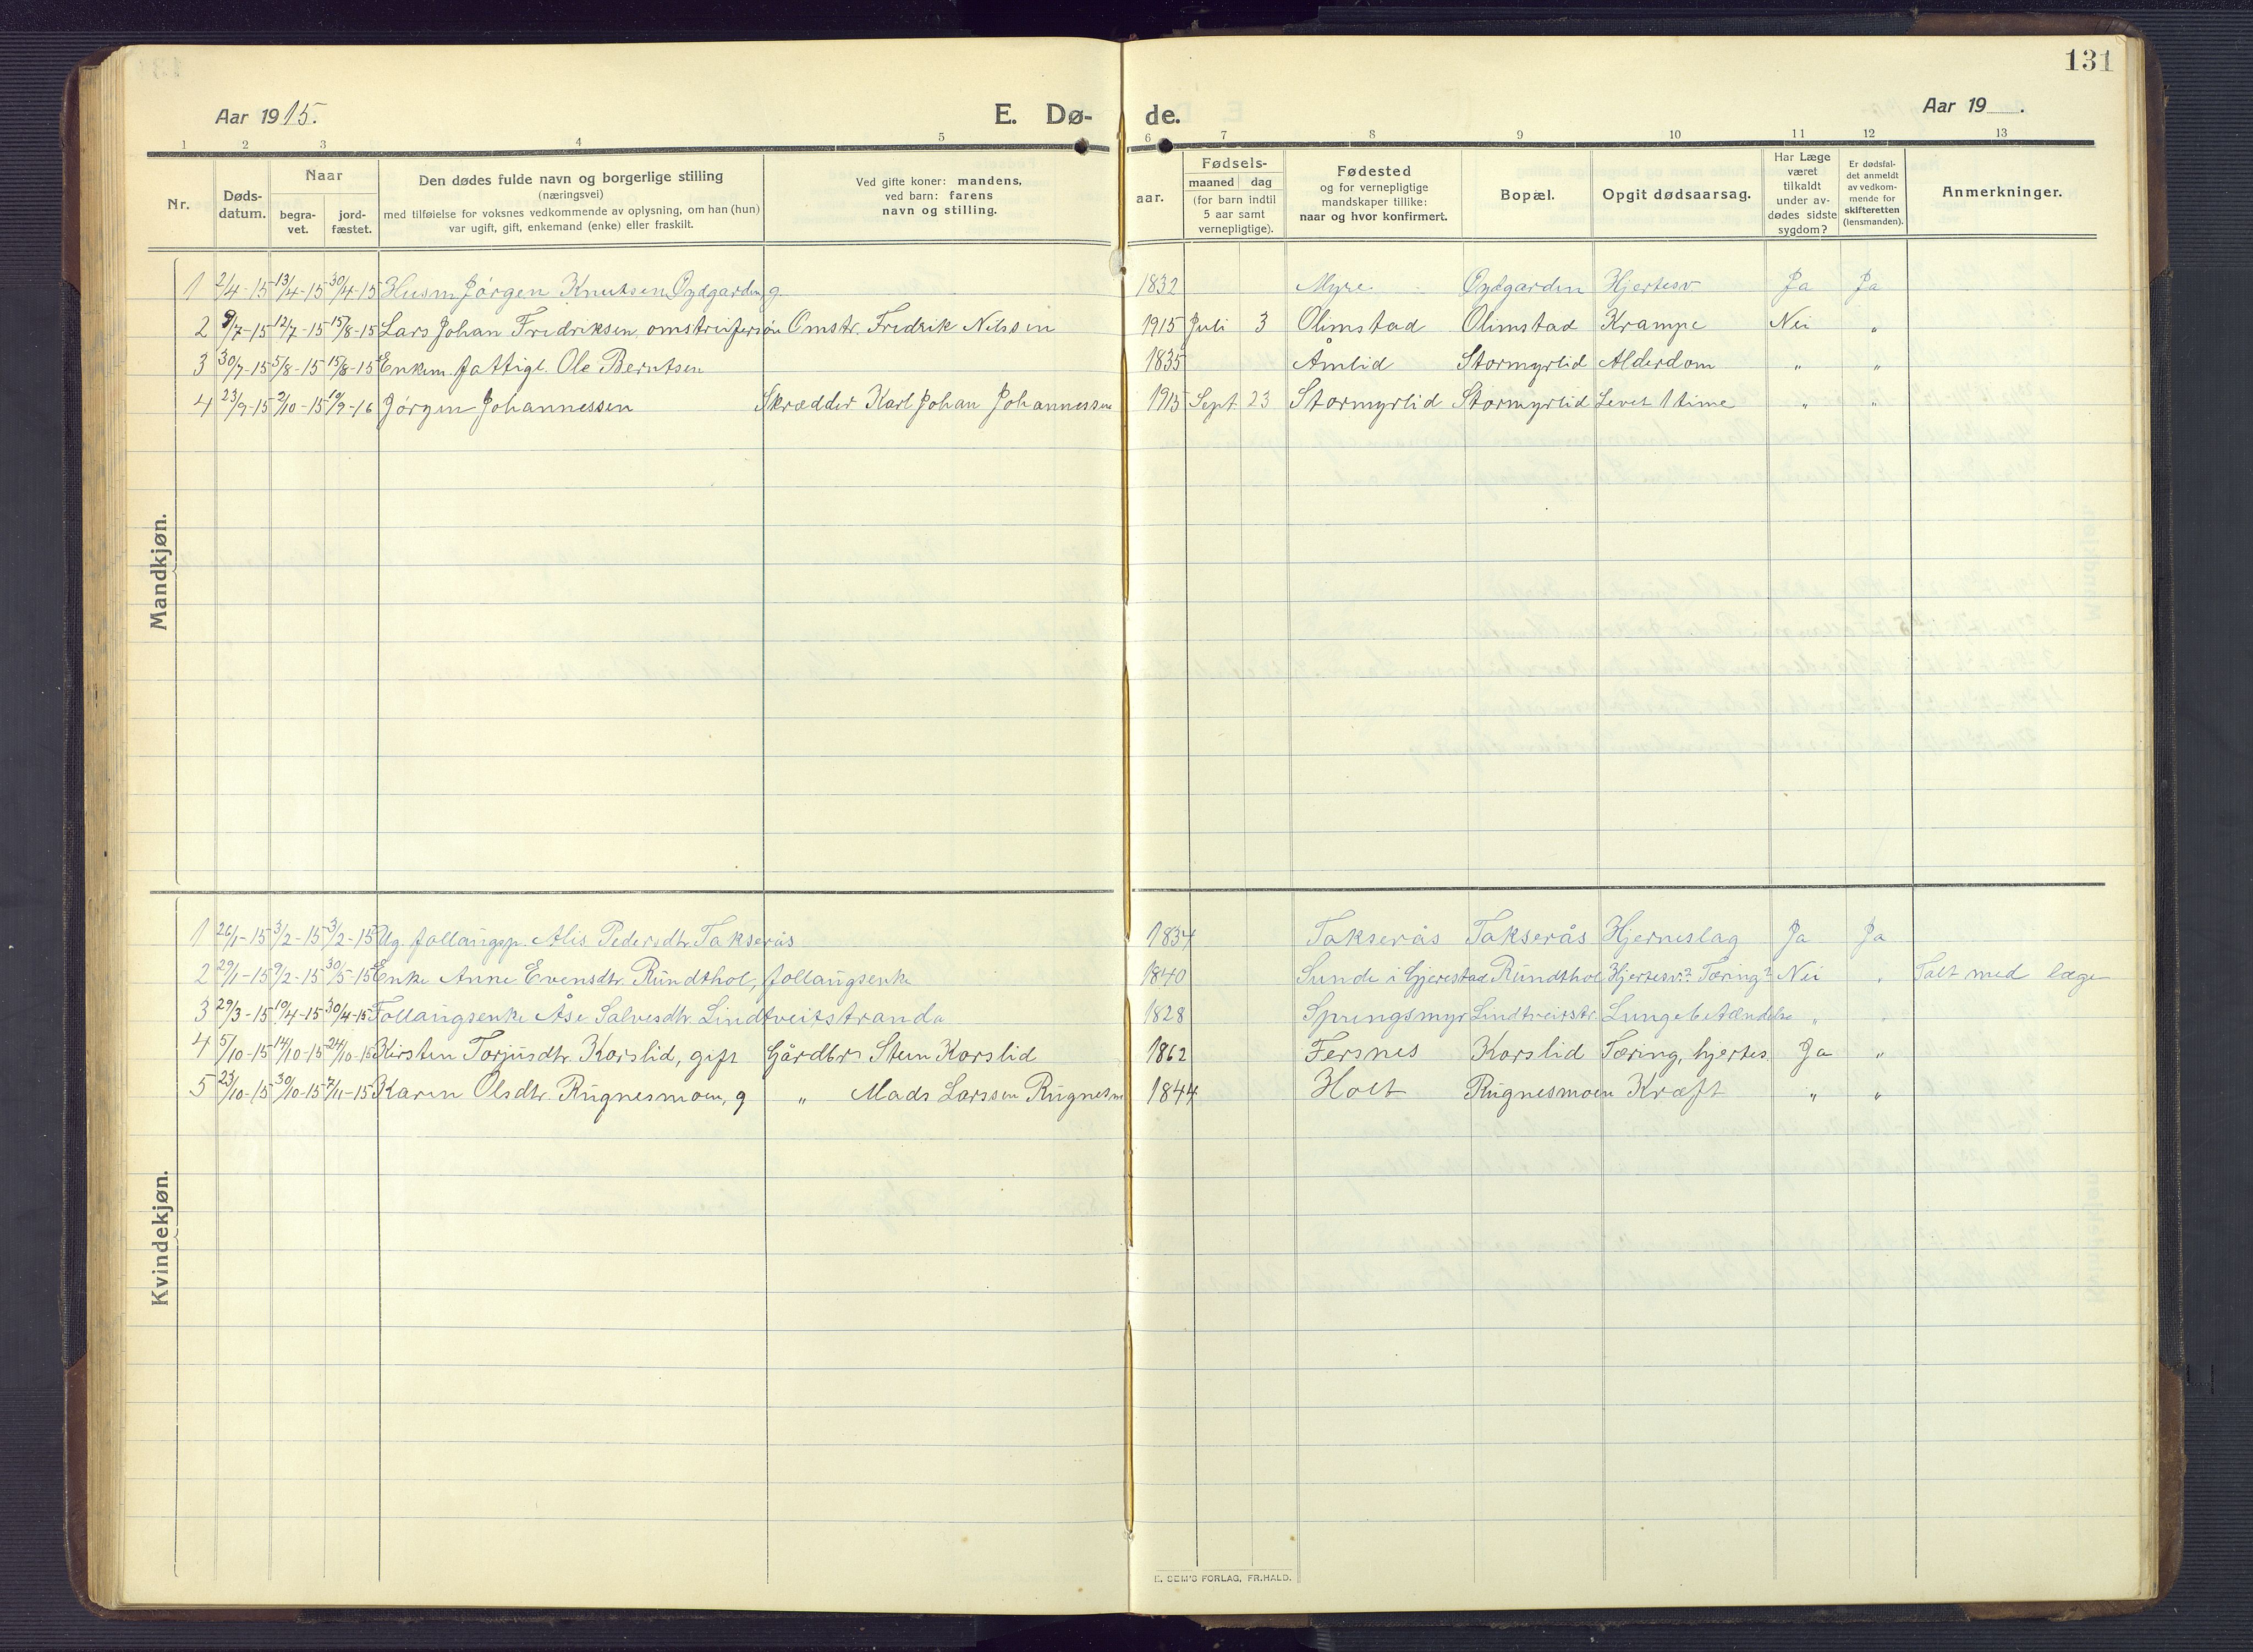 131
Aar 1915. E. Dø- de. Aar 19 .
1 2 3 4 5 6 7 8 9 10 11 12 13
Nr.
Døds-
datum.
Naar
begra-
vet.
jord-
fæstet.
Den dødes fulde navn og borgerlige stilling
(næringsvei)
med tilføielse for voksnes vedkommende av oplysning, om han (hun)
var ugift, gift, enkemand (enke) eller fraskilt.
Ved gifte koner: mandens,
ved barn: farens
navn og stilling.
aar.
Fødsels-
maaned dag
(for barn indtil
5 aar samt
vernepligtige).
Fødested
og for vernepligtige
mandskaper tillike:
naar og hvor konfirmert.
Bopæl.
Opgit dødsaarsag.
Har Læge
været
tilkaldt
under av-
dødes sidste
sygdom?
Er dødsfal-
det anmeldt
av vedkom-
mende for
skifteretten
(lensmanden).
Anmerkninger.
Mandkjøn.
1 2/4-15 13/4-15 30/4-15 Husm Jørgen Knutsen Øydgarden, g. 1832 Myre Øydgarden Hjertesv Ja Ja
2 9/7-15 12/7-15 15/8-15 Lars Johan Fredriksen, omstreifersøn Omstr. Fredrik Nilssen 1915 Juli 3 Olimstad Olimstad Krampe Nei "
3 30/7-15 5/8-15 15/8-15 Enkem. fattigl. Ole Berntsen 1835 Åmlid Stormyrlid Alderdom " "
4 23/9-15 2/10-15 10/9-16 Jørgen Johannessen Skrædder Karl Johan Johannessen 1915 Sept 23 Stormyrlid Stormyrlid Levet 1 time " "
Kvindekjøn.
1 26/1-15 3/2-15 3/2-15 Ug. follaugsp. Alis Pedersdtr. Takserås 1834 Takserås Takserås Hjerneslag Ja Ja
2 29/1-15 9/2-15 30/5-15 Enke Anne Evensdtr. Rundthol, follaugsenke 1840 Sunde i Gjerestad Rundthol Hjertesv? Tæring? Nei " Talt med læge
3 29/3-15 10/4-15 30/4-15 Follaugsenke Åse Salvesdtr. Lindtveitstranda 1828 Springsmyr Lindtveitstr. Lungebetændelse " "
4 5/10-15 14/10-15 24/10-15 Kirsten Torjusdtr. Korslid, gift Gårdbr. Sten Korslid 1862 Fersnes Korslid Tæring, hjertes. Ja "
5 23/10-15 30/10-15 7/11-15 Karen Olsdtr. Rugnesmoen, g " Mads Larssen Rugnesm 1844 Holt Rugnesmoen Kræft " "
E. SEM'S FORLAG, FR.HALD.